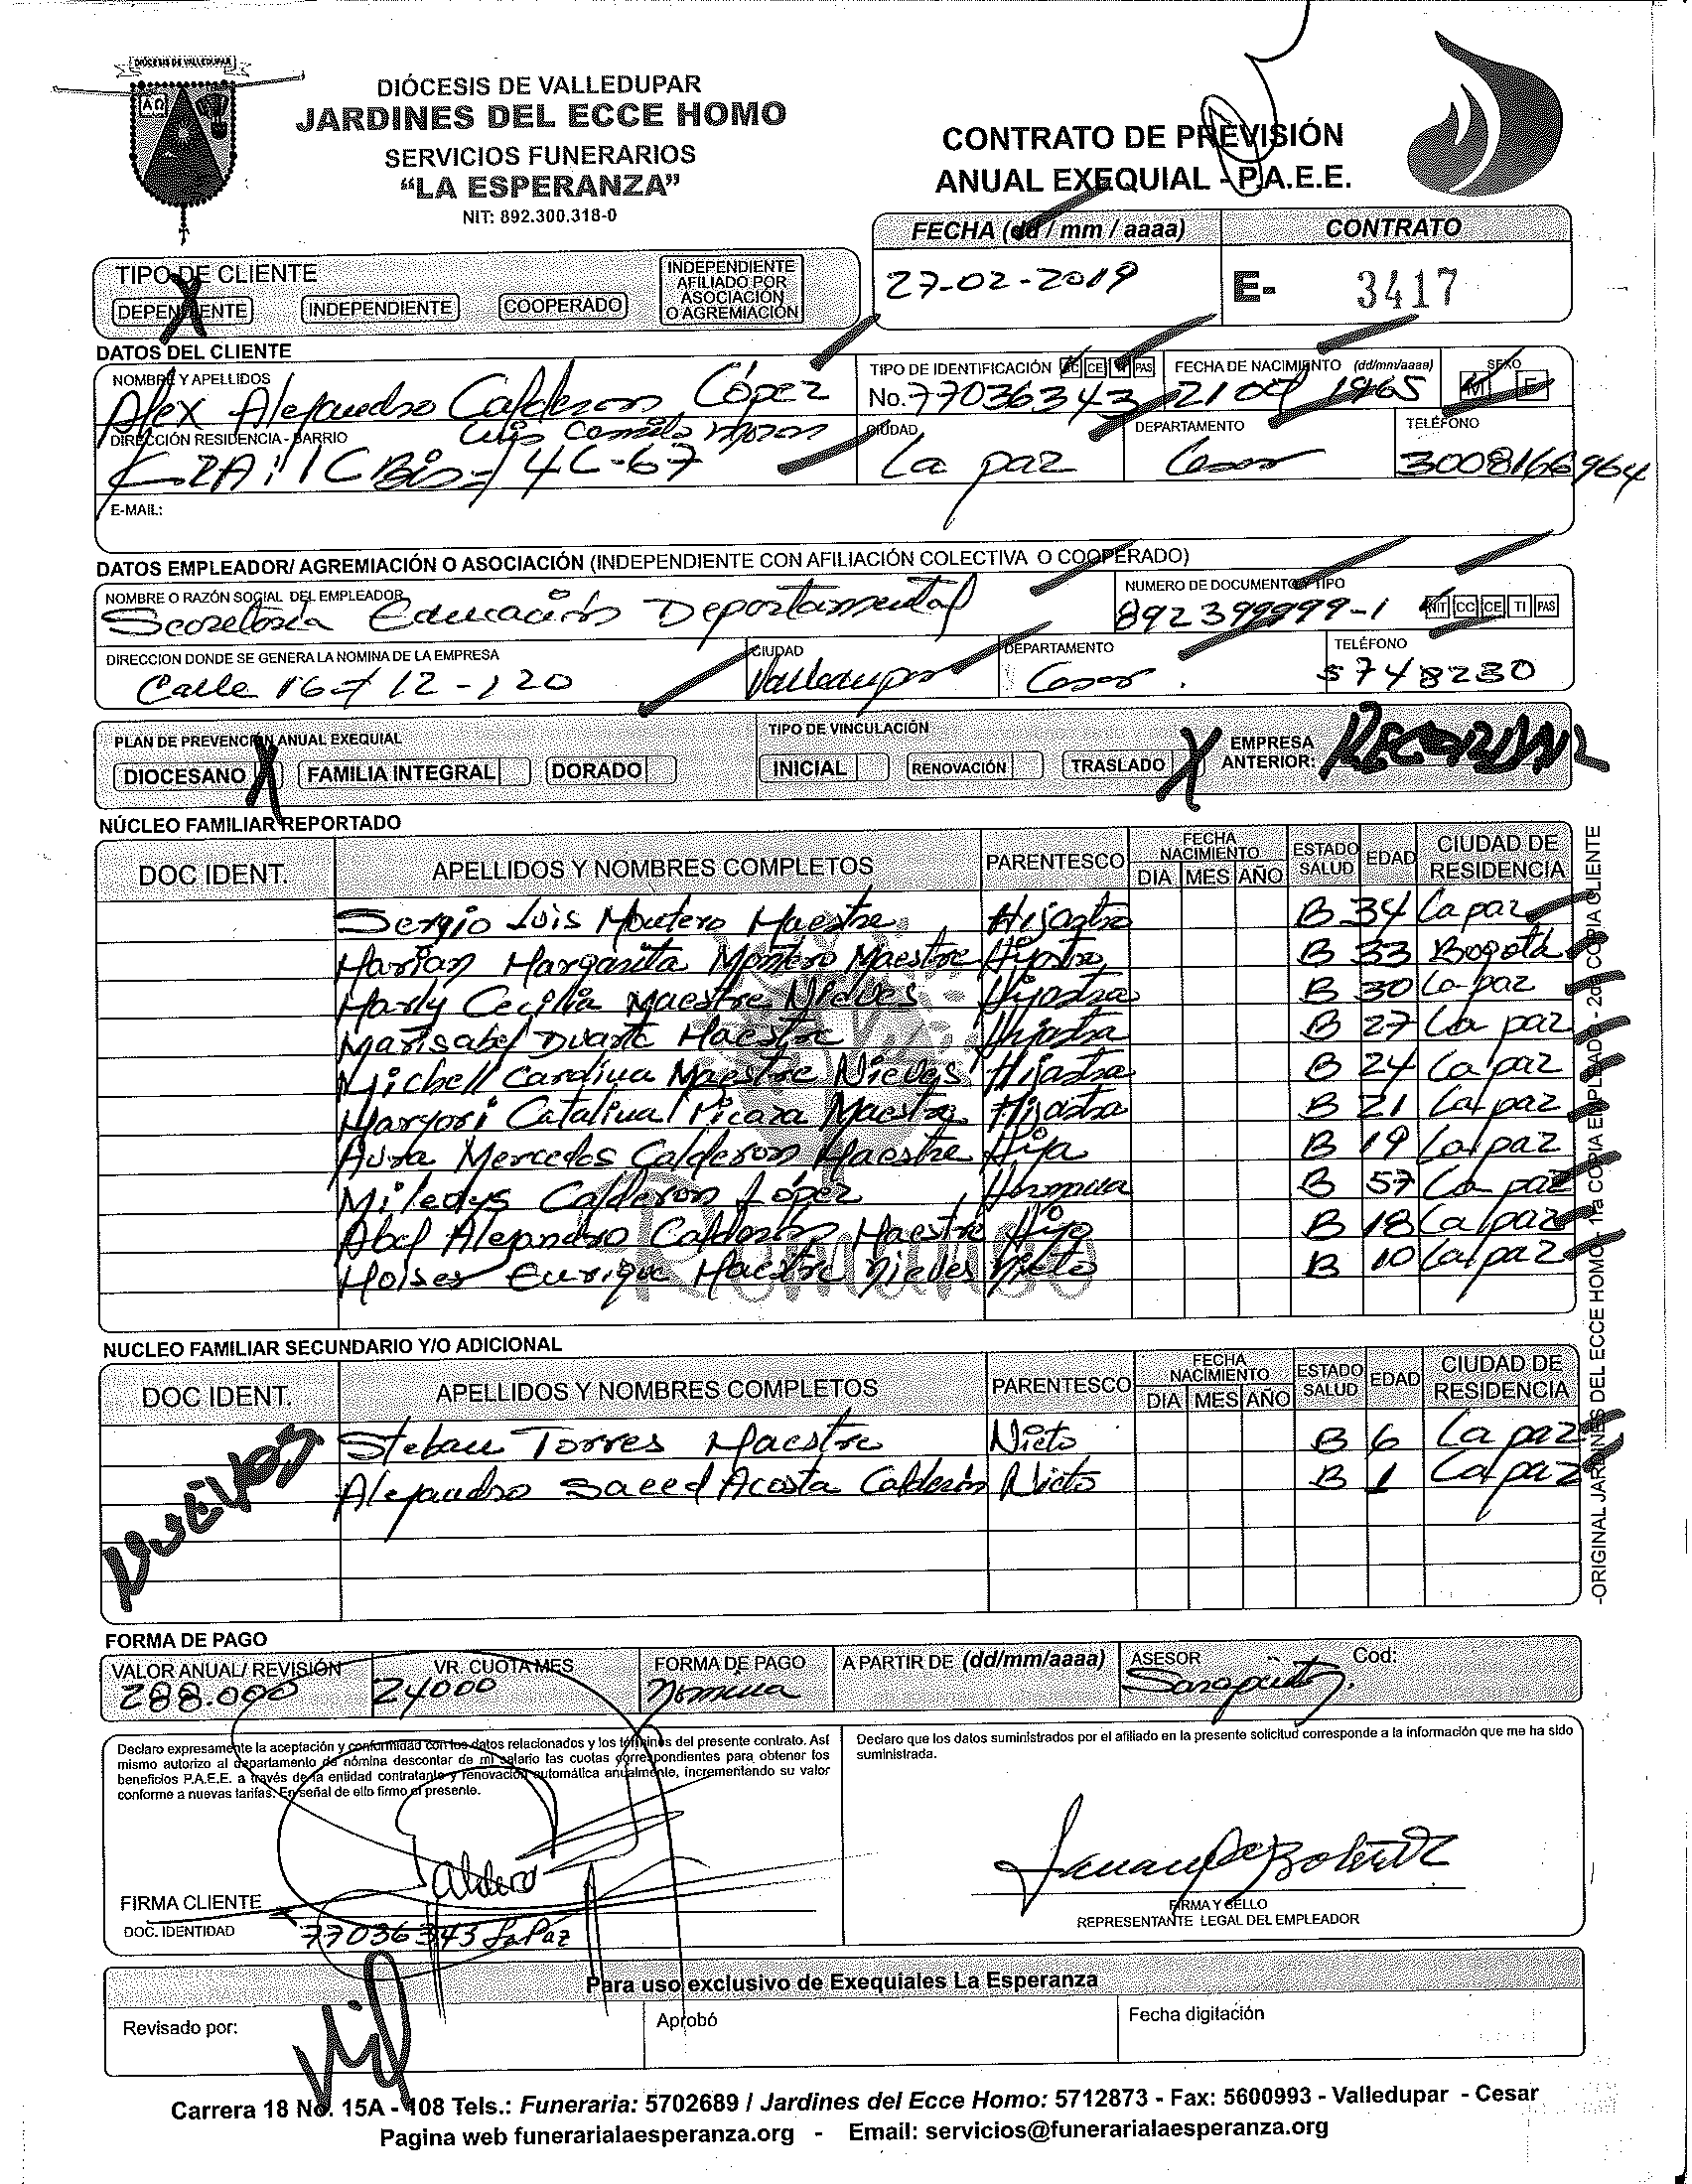 DIÓCESIS DE VALLEDUPAR
DIÓCESIS DE VALLEDUPAR
JARDINES DEL ECCE HOMO
SERVICIOS FUNERARIOS
“LA ESPERANZA”
NIT: 892.300.318-0
CONTRATO DE PREVISIÓN
ANUAL EXEQUIAL - P.A.E.E.
FECHA (dd / mm / aaaa) CONTRATO
27-02-2019 E- 3417
TIPO DE CLIENTE
DEPENDIENTE X INDEPENDIENTE COOPERADO INDEPENDIENTE AFILIADO POR ASOCIACIÓN O AGREMIACIÓN
DATOS DEL CLIENTE
NOMBRE Y APELLIDOS TIPO DE IDENTIFICACIÓN CC CE TI PAS FECHA DE NACIMIENTO (dd/mm/aaaa) SEXO M F
Alex Alejandro Calderon López No. 77036343 21 1965
DIRECCIÓN RESIDENCIA - BARRIO CIUDAD DEPARTAMENTO TELÉFONO
Luis Camilo
4C-67 La paz Cesar 3008166964
E-MAIL:
DATOS EMPLEADOR/ AGREMIACIÓN O ASOCIACIÓN (INDEPENDIENTE CON AFILIACIÓN COLECTIVA O COOPERADO)
NOMBRE O RAZÓN SOCIAL DEL EMPLEADOR NUMERO DE DOCUMENTO Y TIPO
Secretaria Educación Departamental 892399999-1 NIT CC CE TI PAS
DIRECCION DONDE SE GENERA LA NOMINA DE LA EMPRESA CIUDAD DEPARTAMENTO TELÉFONO
Calle 16 # 12-120 Valledupar Cesar. 5748230
PLAN DE PREVENCIÓN ANUAL EXEQUIAL TIPO DE VINCULACIÓN
DIOCESANO X FAMILIA INTEGRAL DORADO INICIAL RENOVACIÓN TRASLADO X EMPRESA ANTERIOR:
NÚCLEO FAMILIAR REPORTADO
DOC IDENT. APELLIDOS Y NOMBRES COMPLETOS PARENTESCO FECHA NACIMIENTO DIA MES AÑO ESTADO SALUD EDAD CIUDAD DE RESIDENCIA
Sergio Luis Montero Maestre Hijastro B 34 La paz
Marian Margarita Montero Maestre Hijastra B 33 Bogotá
Marly Cecilia Maestre Nieves Hijastra B 30 La paz
Marisabel Duarte Maestre Hijastra B 27 La paz
Michell Carolina Maestre Nieves Hijastra B 24 La paz
Maryori Catalina Picaza Maestre Hijastra B 21 La paz
Aura Mercedes Calderon Maestre Hija B 19 La paz
Miledys Calderon López Hermana B 57 La paz
Abel Alejandro Calderon Maestre Hijo B 18 La paz
Moises Enrique Maestre Nieves Nieto B 10 La paz
Romanso
NUCLEO FAMILIAR SECUNDARIO Y/O ADICIONAL
DOC IDENT. APELLIDOS Y NOMBRES COMPLETOS PARENTESCO FECHA NACIMIENTO DIA MES AÑO ESTADO SALUD EDAD CIUDAD DE RESIDENCIA
NUEVOS
Steban Torres Maestre Nieto B 6 La paz
Alejandro Saeed Acosta Calderón Nieto B 1 La paz
-ORIGINAL JARDINES DEL ECCE HOMO - 1ra COPIA EMPLEADO - 2da COPIA CLIENTE
FORMA DE PAGO
VALOR ANUAL/ REVISIÓN VR. CUOTA MES FORMA DE PAGO A PARTIR DE (dd/mm/aaaa) ASESOR Cod:
288.000 24000 Nomina
Declaro expresamente la aceptación y conformidad con los datos relacionados y los términos del presente contrato. Así
mismo autorizo al departamento de nómina descontar de mi salario las cuotas correspondientes para obtener los
beneficios P.A.E.E. a través de la entidad contratante y renovación automática anualmente, incrementando su valor
conforme a nuevas tarifas. En señal de ello firmo el presente.
Declaro que los datos suministrados por el afiliado en la presente solicitud corresponde a la información que me ha sido
suministrada.
FIRMA CLIENTE
DOC. IDENTIDAD 77036343 La Paz
FIRMA Y SELLO
REPRESENTANTE LEGAL DEL EMPLEADOR
Para uso exclusivo de Exequiales La Esperanza
Revisado por: Aprobó Fecha digitación
Carrera 18 No. 15A - 108 Tels.: Funeraria: 5702689 / Jardines del Ecce Homo: 5712873 - Fax: 5600993 - Valledupar - Cesar
Pagina web funerarialaesperanza.org - Email: servicios@funerarialaesperanza.org